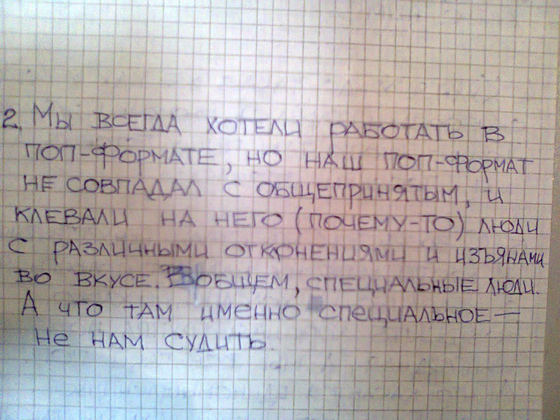 2. Мы ВСЕГДА ХОТЕЛИ РАБОТАТЬ В
ПОП-ФОРМАТЕ, НО НАШ ПОП-ФОРМАТ
НЕ СОВПАДАЛ С ОБЩЕПРИНЯТЫМ, И
КЛЕВАЛИ НА НЕГО (ПОЧЕМУ-ТО) ЛЮДИ
С РАЗЛИЧНЫМИ ОТКОНЕНИЯМИ И ИЗЪЯНАМИ
ВО ВКУСЕ. ВОБЩЕМ, СПЕЦИАЛЬНЫЕ ЛЮДИ.
А ЧТО ТАМ ИМЕННО СПЕЦИАЛЬНОЕ —
НЕ НАМ СУДИТЬ.